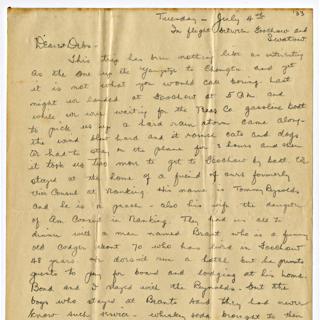 Tuesday - July 4th '33
In flight between Foochow and
Swatow
Dearest Debs-
This trip has been nothing like as interesting
as the one up the Yangtze to Chengtu and yet
it is not what you would call boring. Last
night we landed at Foochow at 5 P.M. and
while we were waiting for the Texas Co. gasoline boat
to pick us up a hard rain storm came along-
the wind blew hard and it rained cats and dogs
We had to stay in the plane for 2 hours and then
it took us two more to get to Foochow by boat. We
stayed at the home of a friend of ours formerly
Vice Consul at Nanking. His name is Tommy Reynolds
and he is a peach - also his wife the daughter
of Am Consul in Nanking. They had us all to
dinner with a man named Brand who is a funny
old codger about 70 who has lived in Foochow
48 years or doesn't run a hotel but he permits
guests to pay for board and lodging at his home.
Bond and I stayed with the Reynolds but the
boys who stayed at Brants said they had never
know such service - whiskey soda brought to their